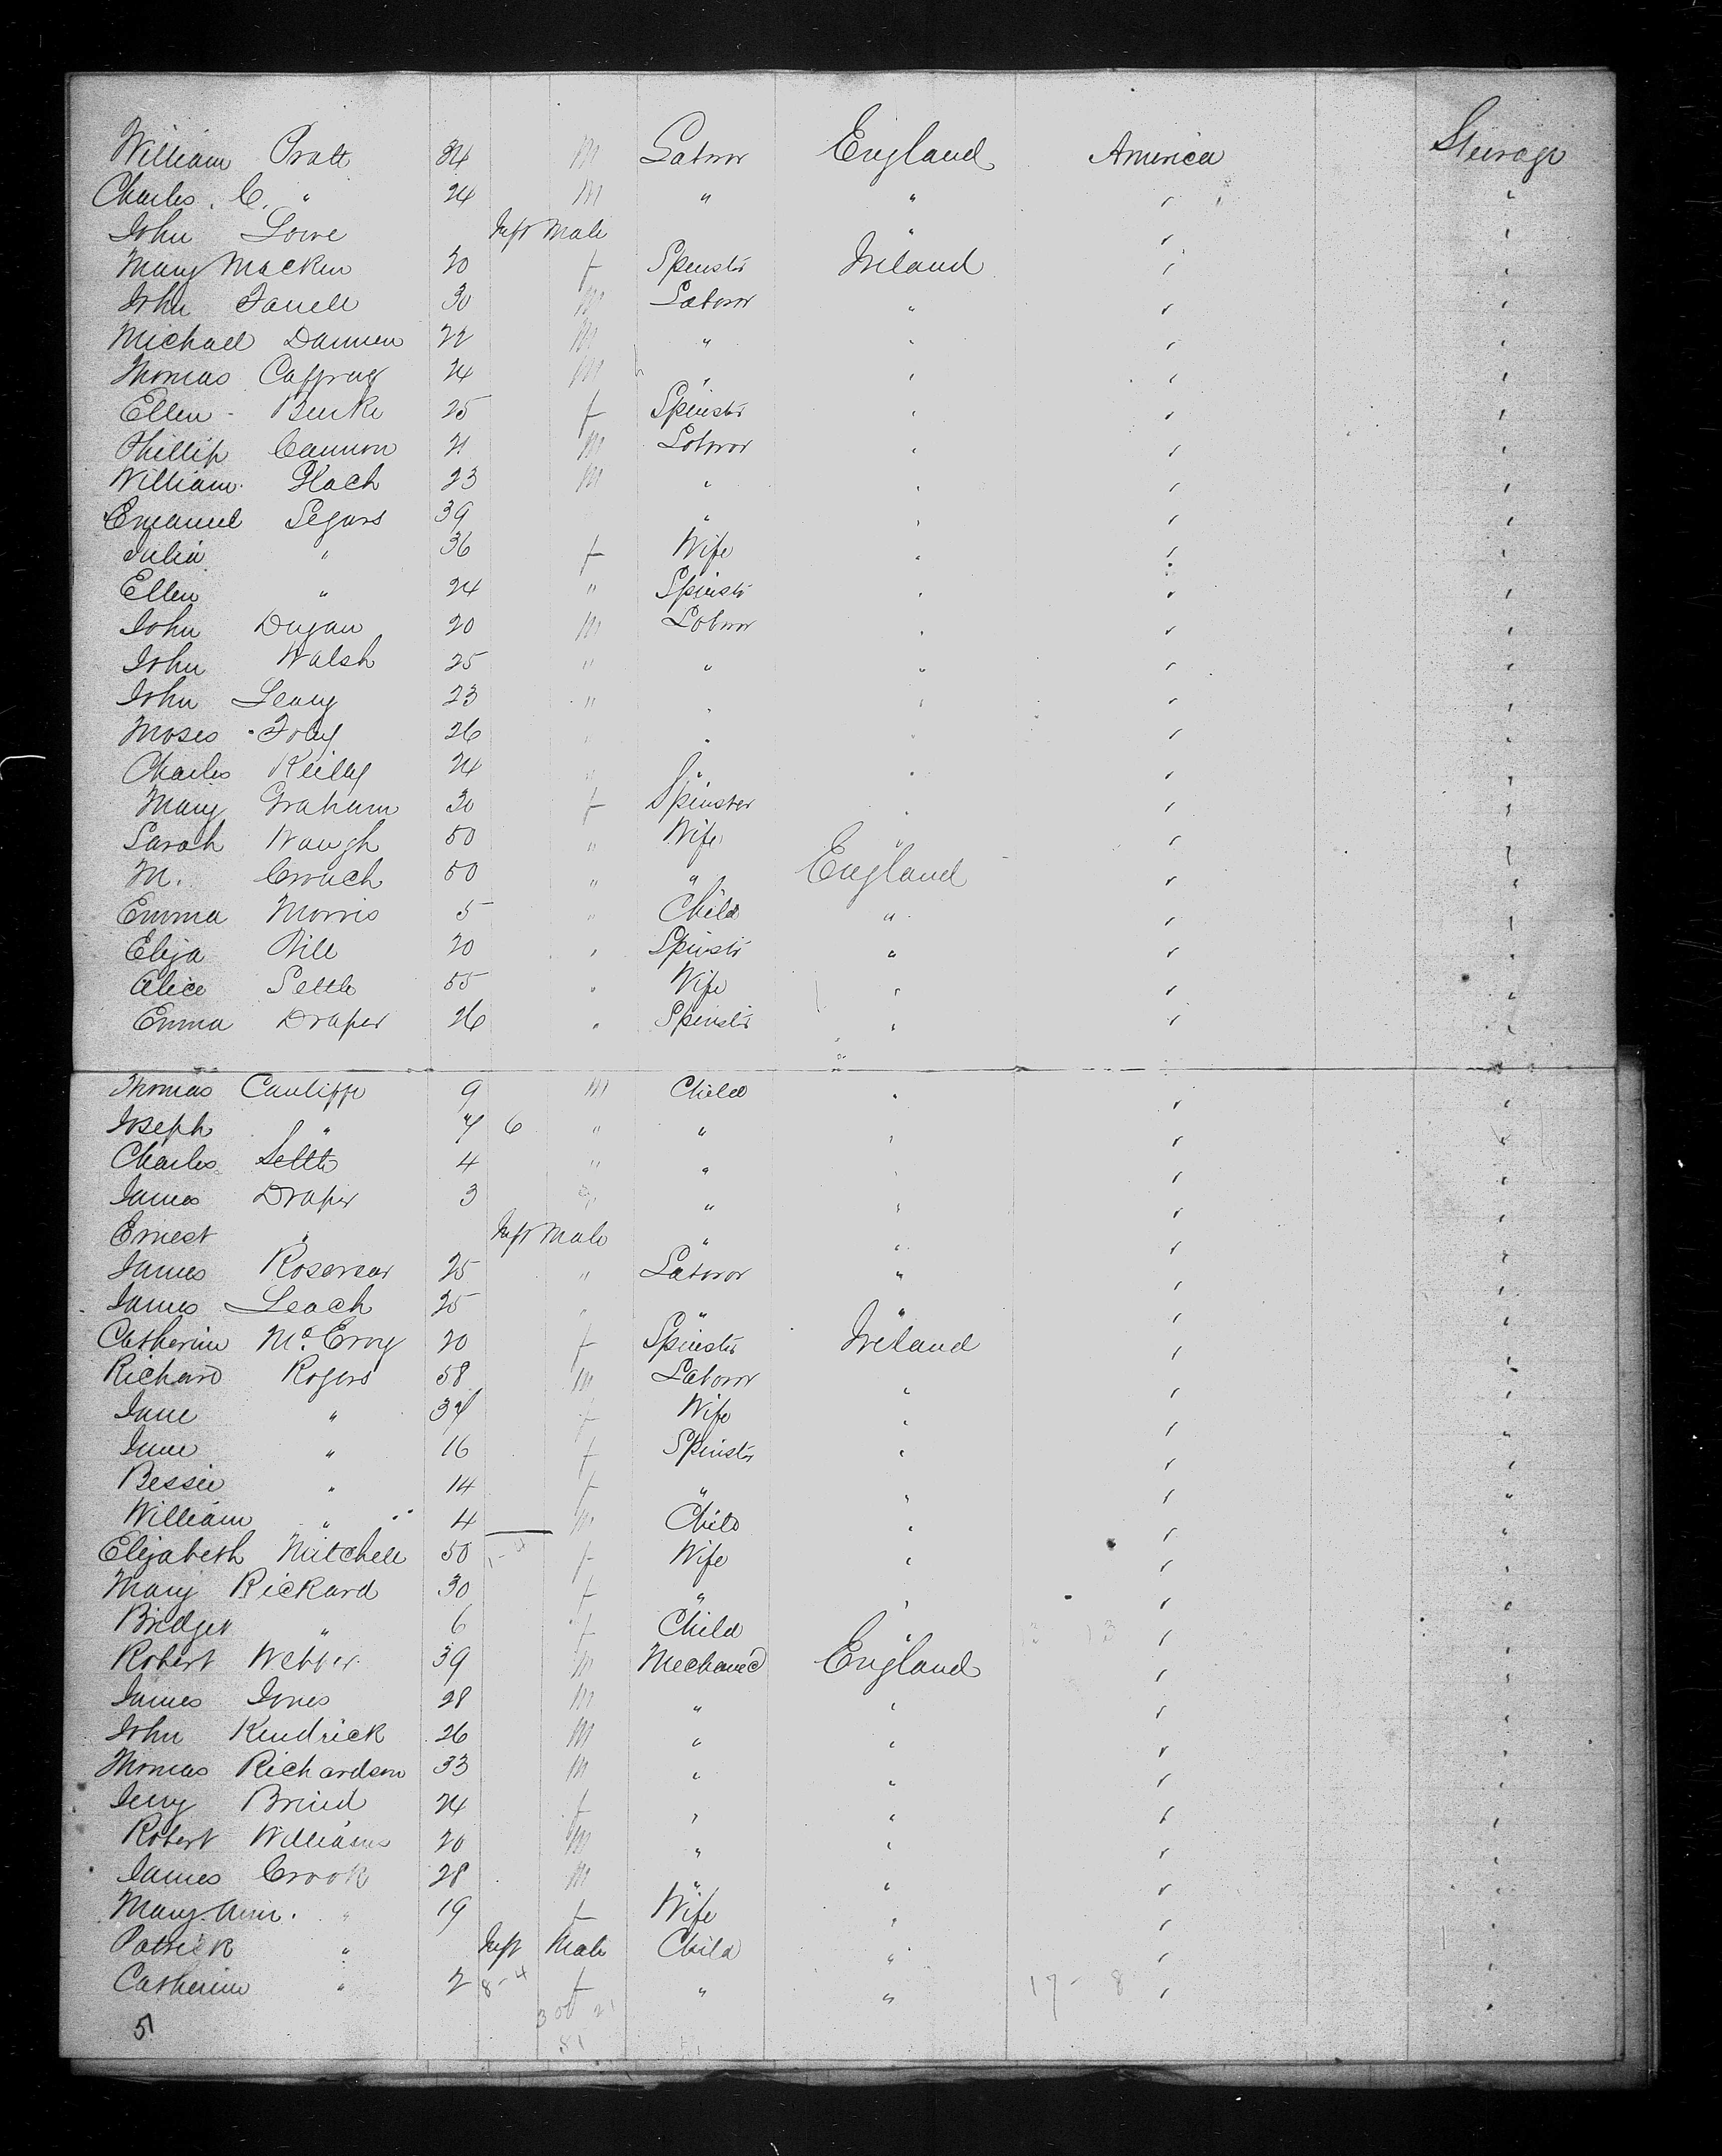 William Pratt 34 M Labror England America Steerage
Charles. C. " 24 M " " " "
John Lowe Inft Male " " "
Mary Macken 20 f Spinstr Ireland " "
John Farrell 30 M Labror " " "
Michael Dannen 22 M " " " "
Thomas Caffray 24 M " " " "
Ellen Burke 25 f Spinstr " " "
Phillip Cannon 21 M Labror " " "
William Hach 23 M " " " "
Emanuel Segars 39 " " " "
Julia " 36 f Wife " " "
Ellen " 24 " Spinstr " " "
John Dugan 20 M Labror " " "
John Walsh 25 " " " " "
John Leary 23 " " " " "
Moses Foley 26 " " " " "
Charles Reilly 24 " " " " "
Mary Graham 30 f Spinster " " "
Sarah Waugh 50 " Wife " " "
M. Crouch 50 " " England " "
Emma Morris 5 " Child " " "
Eliza Hill 20 " Spinstr " " "
Alice Settle 55 " Wife " " "
Emma Draper 26 " Spinstr " " "
Thomas Cauliffe 9 M Child " " "
Joseph " 7 6 " " " " "
Charles Settle 4 " " " " "
James Draper 3 " " " " "
Ernest " Inft Male " " " "
James Rosevear 25 " Labror " " "
James Leach 25 " " " " "
Catherine McEvoy 20 f Spinster Ireland " "
Richard Rogers 58 M Labror " " "
Jane " 34 f Wife " " "
Jane " 16 f Spinstr " " "
Bessie " 14 f " " " "
William " 4 M Child " " "
Elizabeth Mitchell 50 f Wife " " "
Mary Rickard 30 f " " " "
Bridget " 6 f Child " " "
Robert Webber 39 M Mechanic England " "
James Jones 28 M " " " "
John Kendrick 26 M " " " "
Thomas Richardson 33 M " " " "
Jerry Brind 24 " " " "
Robert Williams 20 M " " " "
James Crook 28 M " " " "
Mary Ann. " 19 f Wife " " "
Patrick " Inft Male Child " " "
Catherine " 2 8-4 f " " 17- 8 " "
51